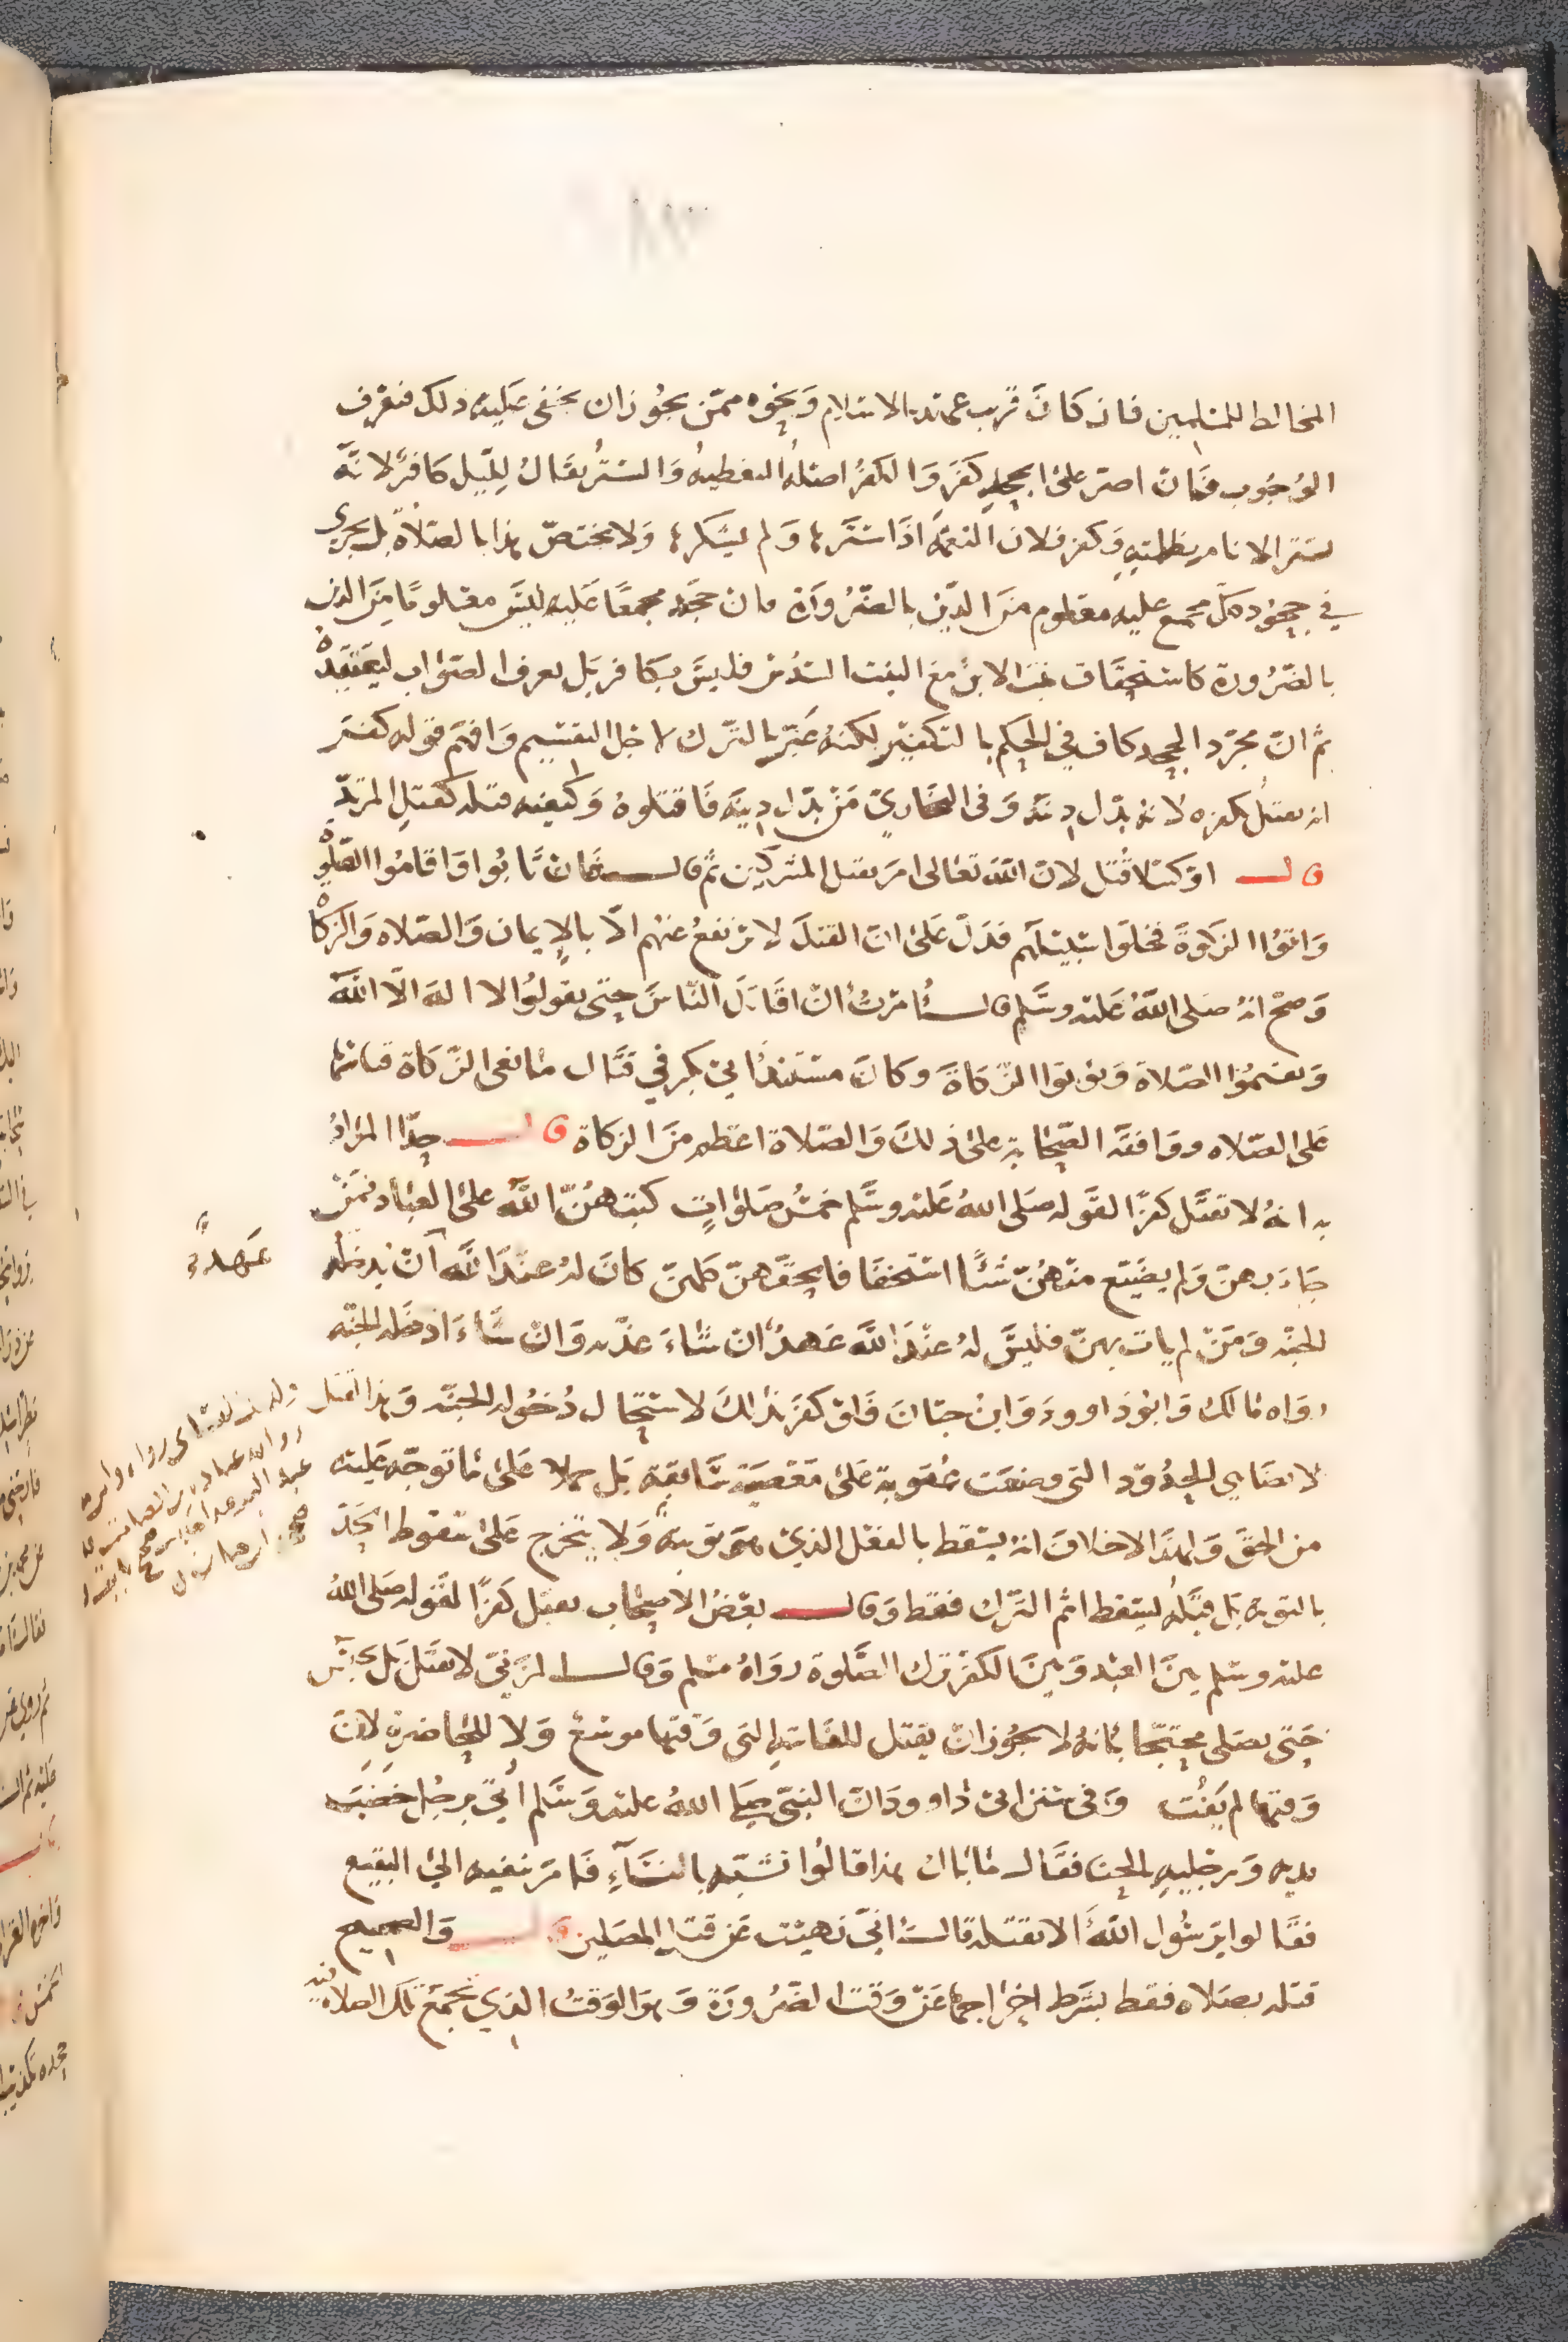 المخالط للمسلمين فان كان قريب عهد بالاسلام ونحوه ممن يجوز ان يخفى عليه ذلك فيعرف
الوُجُوب فان اصر على الجحد كفَرَ والكفرُ اصلهُ التغطيهُ وَالسترُ يقالُ لِلّيل كافرٌ لانَّهُ
يستر الانام بظلمتِهِ وكفر فلان النعمَهَ اذَا سَتَرها وَلم يشكرها وَلا يختصّ هذا بالصّلاةِ بل يجري
في جحُود كل مجمع عليه معلوم منَ الدّين بالضّرُورَة فان جَحَد مجمعًا عَليهِ ليسَ معلومًا مِنَ الدين
بالضّرُورة كاستحقاق بنت الابن مع البنت السّدُسَ فليسَ بكافر بَل يعرف الصّوَاب ليَعتَقِدهُ
ثم انّ مجرّد الجحد كاف في الحكم بالتكفير لكنهُ عَبّر بالتّرك لاجل التقسِيم وَافهَم قوله كفَر
انه يقتلُ بكفره لانهُ بدّل دينَهُ وَفى البخاريّ مَنْ بدّل دِينَه فَاقتلوهُ وَكيفيه قتله كقتل المرتدّ
قال اوكسَلا قُتل لانّ اللهَ تعَالى امَر بقتل المشركين ثم قال فان تَابُوا وَاقامُوا الصّلوة
وَاتوُا الزكوةَ فخلوا سَبيلَهم فدَلّ عَلى انّ القتلَ لا يرتفعُ عنهم الّا بالإيمان وَالصّلاه وَالزكاة
وَصحّ انهُ صَلى اللهُ عَليه وسَلم قال اُمرتُ أنْ اقاتِلَ النّاسَ حتّى يقولوُا لا الهَ الّا اللهَ
وَيقيمُوا الصّلاة وَيؤتوا الزّكاةَ وكانَ مستندُ ابى بكر في قتَال مانعى الزّكاة قياسها
عَلى الصّلاه ووَافقهَ الصّحابة على ذلكَ وَالصّلاة اعظم منَ الزكاة قال حدّا المرَادُ
به انهُ لا يقتل كفرًا لقوله صَلى اللهُ عَليه وسَلم خمسُ صَلوَاتٍ كتبَهُنّ اللهُ على العبَاد فمَنْ
جَاءَ بهنّ وَلم يضَيّع منهُنّ شَيًا استخفافا بحقّهنّ كانَ لهُ عندَ اللهِ انْ يدخلَه
عَهدٌ
الجنه وَمَنْ لم يات بهنّ فليسَ لهُ عندَ اللهِ عَهدٌ انْ شاءَ عذّبه وَانْ شَاءَ ادخله الجنّه
رَوَاه مَالك وَابوُ دَاوود وَابنُ حبّانَ فَلوْ كفَرَ بذلكَ لاستحَال دُخوُله الجنّه وَهذا القتل
لا يضَاهى الحدُودَ التى وضعَت عقوبةً عَلى مَعصيَة سَابقة بَل حملا عَلى مَا توجّه عَليه
من الحقّ وَلهذَا لا خلافَ انهُ يسقط بالفعل الذى هوَ توبةٌ وَلا يتخرج عَلى سقوط الحَدّ
بالتوبه بَل قتلهُ يسقط اثم الترك فقط وَقال بعضُ الاصحَاب يقتل كفرًا لقوله صَلى اللهُ
عليه وسَلم بينَ العَبد وَبينَ الكفر تركُ الصّلوة رَوَاهُ مسْلم وَقال المزَنيّ لا يقتل بَل يحبَس
حَتى يصَلى محتجّا بانهُ لا يجُوز انْ يقتل للفائتة التى وَقتها موسّع وَلا للحَاضرة لانّ
وَقتها لم يَفُت وَفى سنن ابى دَاوود انّ النبيّ صَلى اللهُ عليه وَسَلم أُتىَ برجُل خضبَ
يديه وَرجليهِ بالحنا فقال مَا بَال هذا قالُوا تشبّه بالنسَآءِ فَامَر بنفيه الىَ البقيع
فقالوا يَرسُول اللهَ الا نقتله قال انىّ نهيت عَن قتل المصَلين قال وَالصحيح
قتله بصَلاه فقط بشَرط اخرَاجها عَنْ وَقت الضرُورَة وَهوَ الوَقتُ الذى تجمَع تلك الصلاة فيه